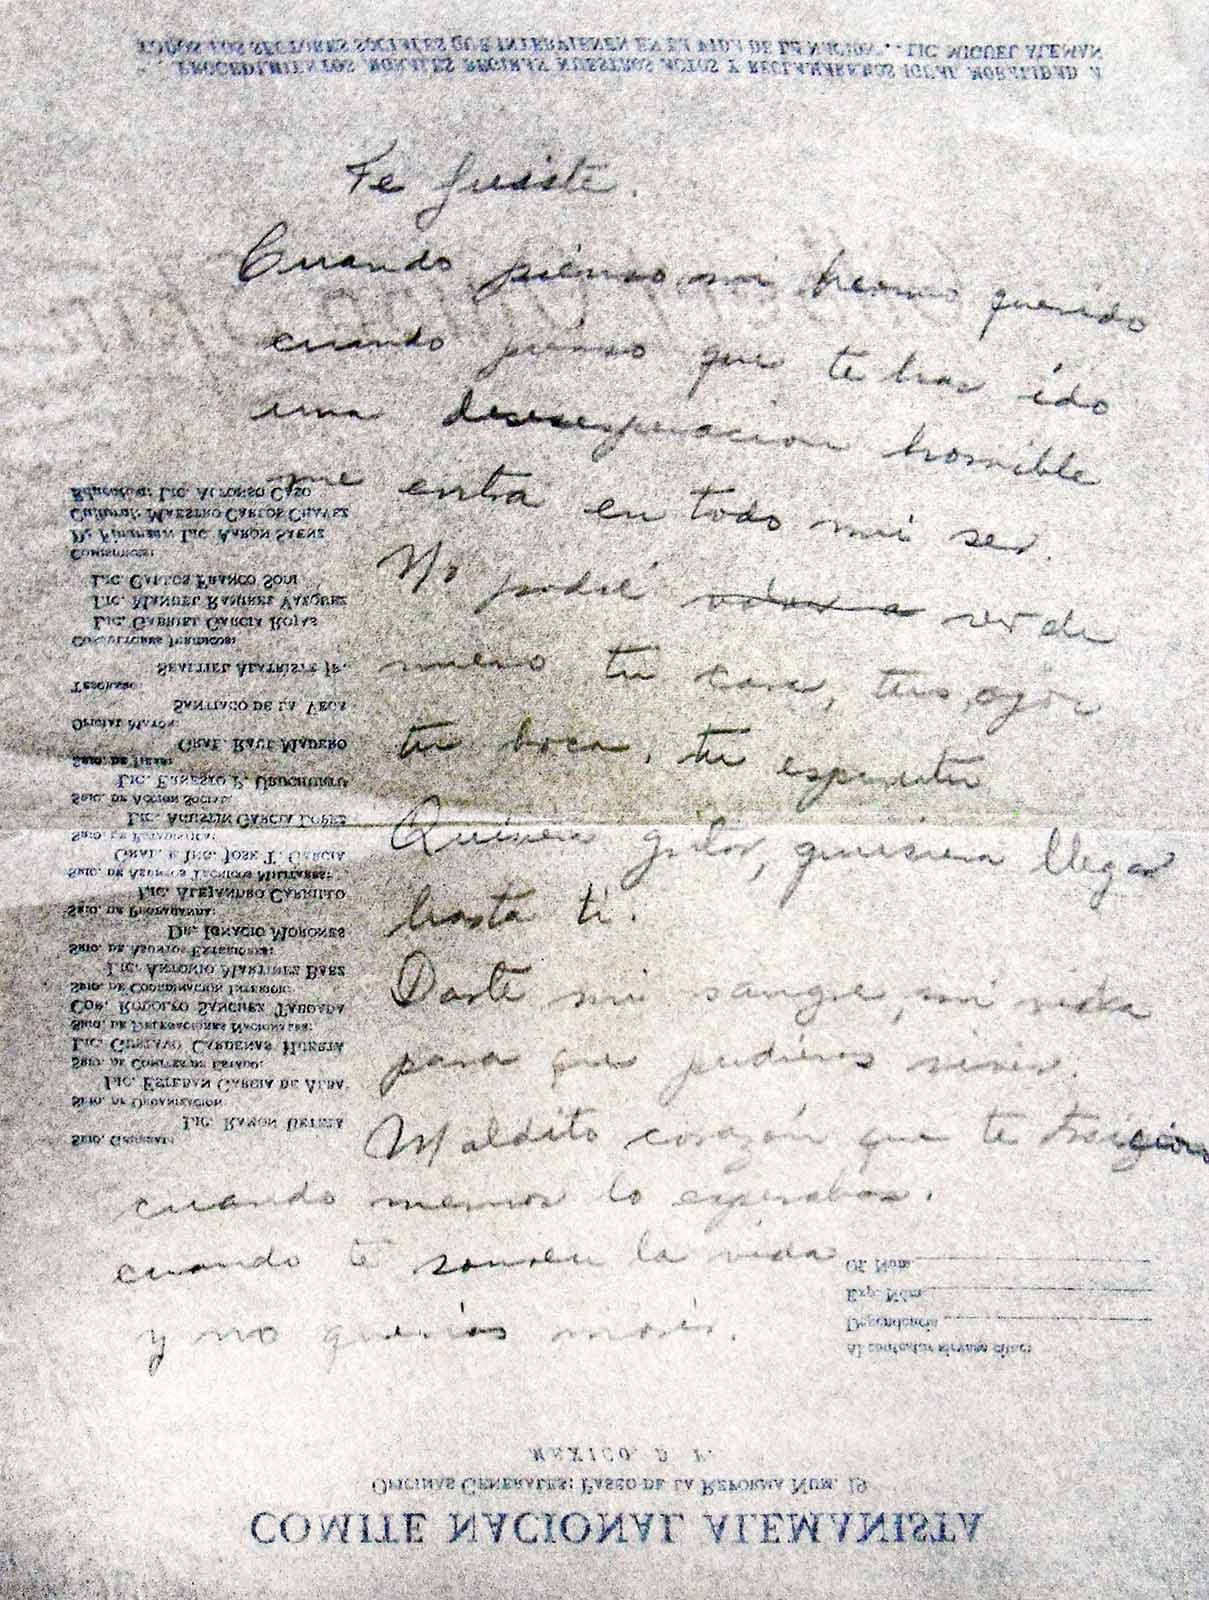 PROCEDIMIENTOS MORALES REGIRAN NUESTROS ACTOS Y RECLAMAREMOS IGUAL MORALIDAD A
TODOS LOS SECTORES SOCIALES QUE INTERVIENEN EN LA VIDA DE LA NACION... LIC. MIGUEL ALEMAN
Te fuiste.
Cuando pienso mi hermano querido
cuando pienso que te has ido
una desesperacion horrible
me entra en todo mi ser.
No podré ver de
nuevo tu cara, tus ojos
tu boca, tu espiritu
Quisiera gritar, quisiera llegar
hasta ti.
Darte mi sangre, mi vida
para que pudieras vivir.
Maldito corazón que te traiciono
cuando menos lo esperabas.
cuando te sonreia la vida
y no querias morir.
COMITE NACIONAL ALEMANISTA
OFICINAS GENERALES: PASEO DE LA REFORMA NUM. 19
MEXICO, D. F.
Al contestar sirvase citar:
Dependencia
Exp. Núm.
Of. Num.
SRIO. GENERAL:
LIC. RAMON BETETA
SRIO. DE ORGANIZACION:
LIC. ESTEBAN GARCIA DE ALBA
SRIO. DE COMITES DE ESTADO:
LIC. GUSTAVO CARDENAS HUERTA
SRIO. DE DELEGACIONES NACIONALES:
COR. RODOLFO SANCHEZ TABOADA
SRIO. DE COORDINACION INTERIOR:
LIC. ANTONIO MARTINEZ BAEZ
SRIO. DE ASUNTOS EXTERIORES:
DR. IGNACIO MORONES
SRIO. DE PROPAGANDA:
LIC. ALEJANDRO CARRILLO
SRIO. DE ASUNTOS TECNICOS MILITARES:
GRAL. E ING. JOSE T. GARCIA
SRIO. DE ESTADISTICA:
LIC. AGUSTIN GARCIA LOPEZ
SRIO. DE ACCION SOCIAL:
LIC. ERNESTO P. URUCHURTU
GRAL. RAUL MADERO
OFICIAL MAYOR:
SANTIAGO DE LA VEGA
TESORERO:
SEALTIEL ALATRISTE JR.
CONSULTORES JURIDICOS:
LIC. GABRIEL GARCIA ROJAS
LIC. MANUEL RAMIREZ VAZQUEZ
LIC. CARLOS FRANCO SODI
COMISIONES:
De Finanzas: LIC. AARON SAENZ
Cultural: MAESTRO CARLOS CHAVEZ
Educativa: LIC. ALFONSO CASO